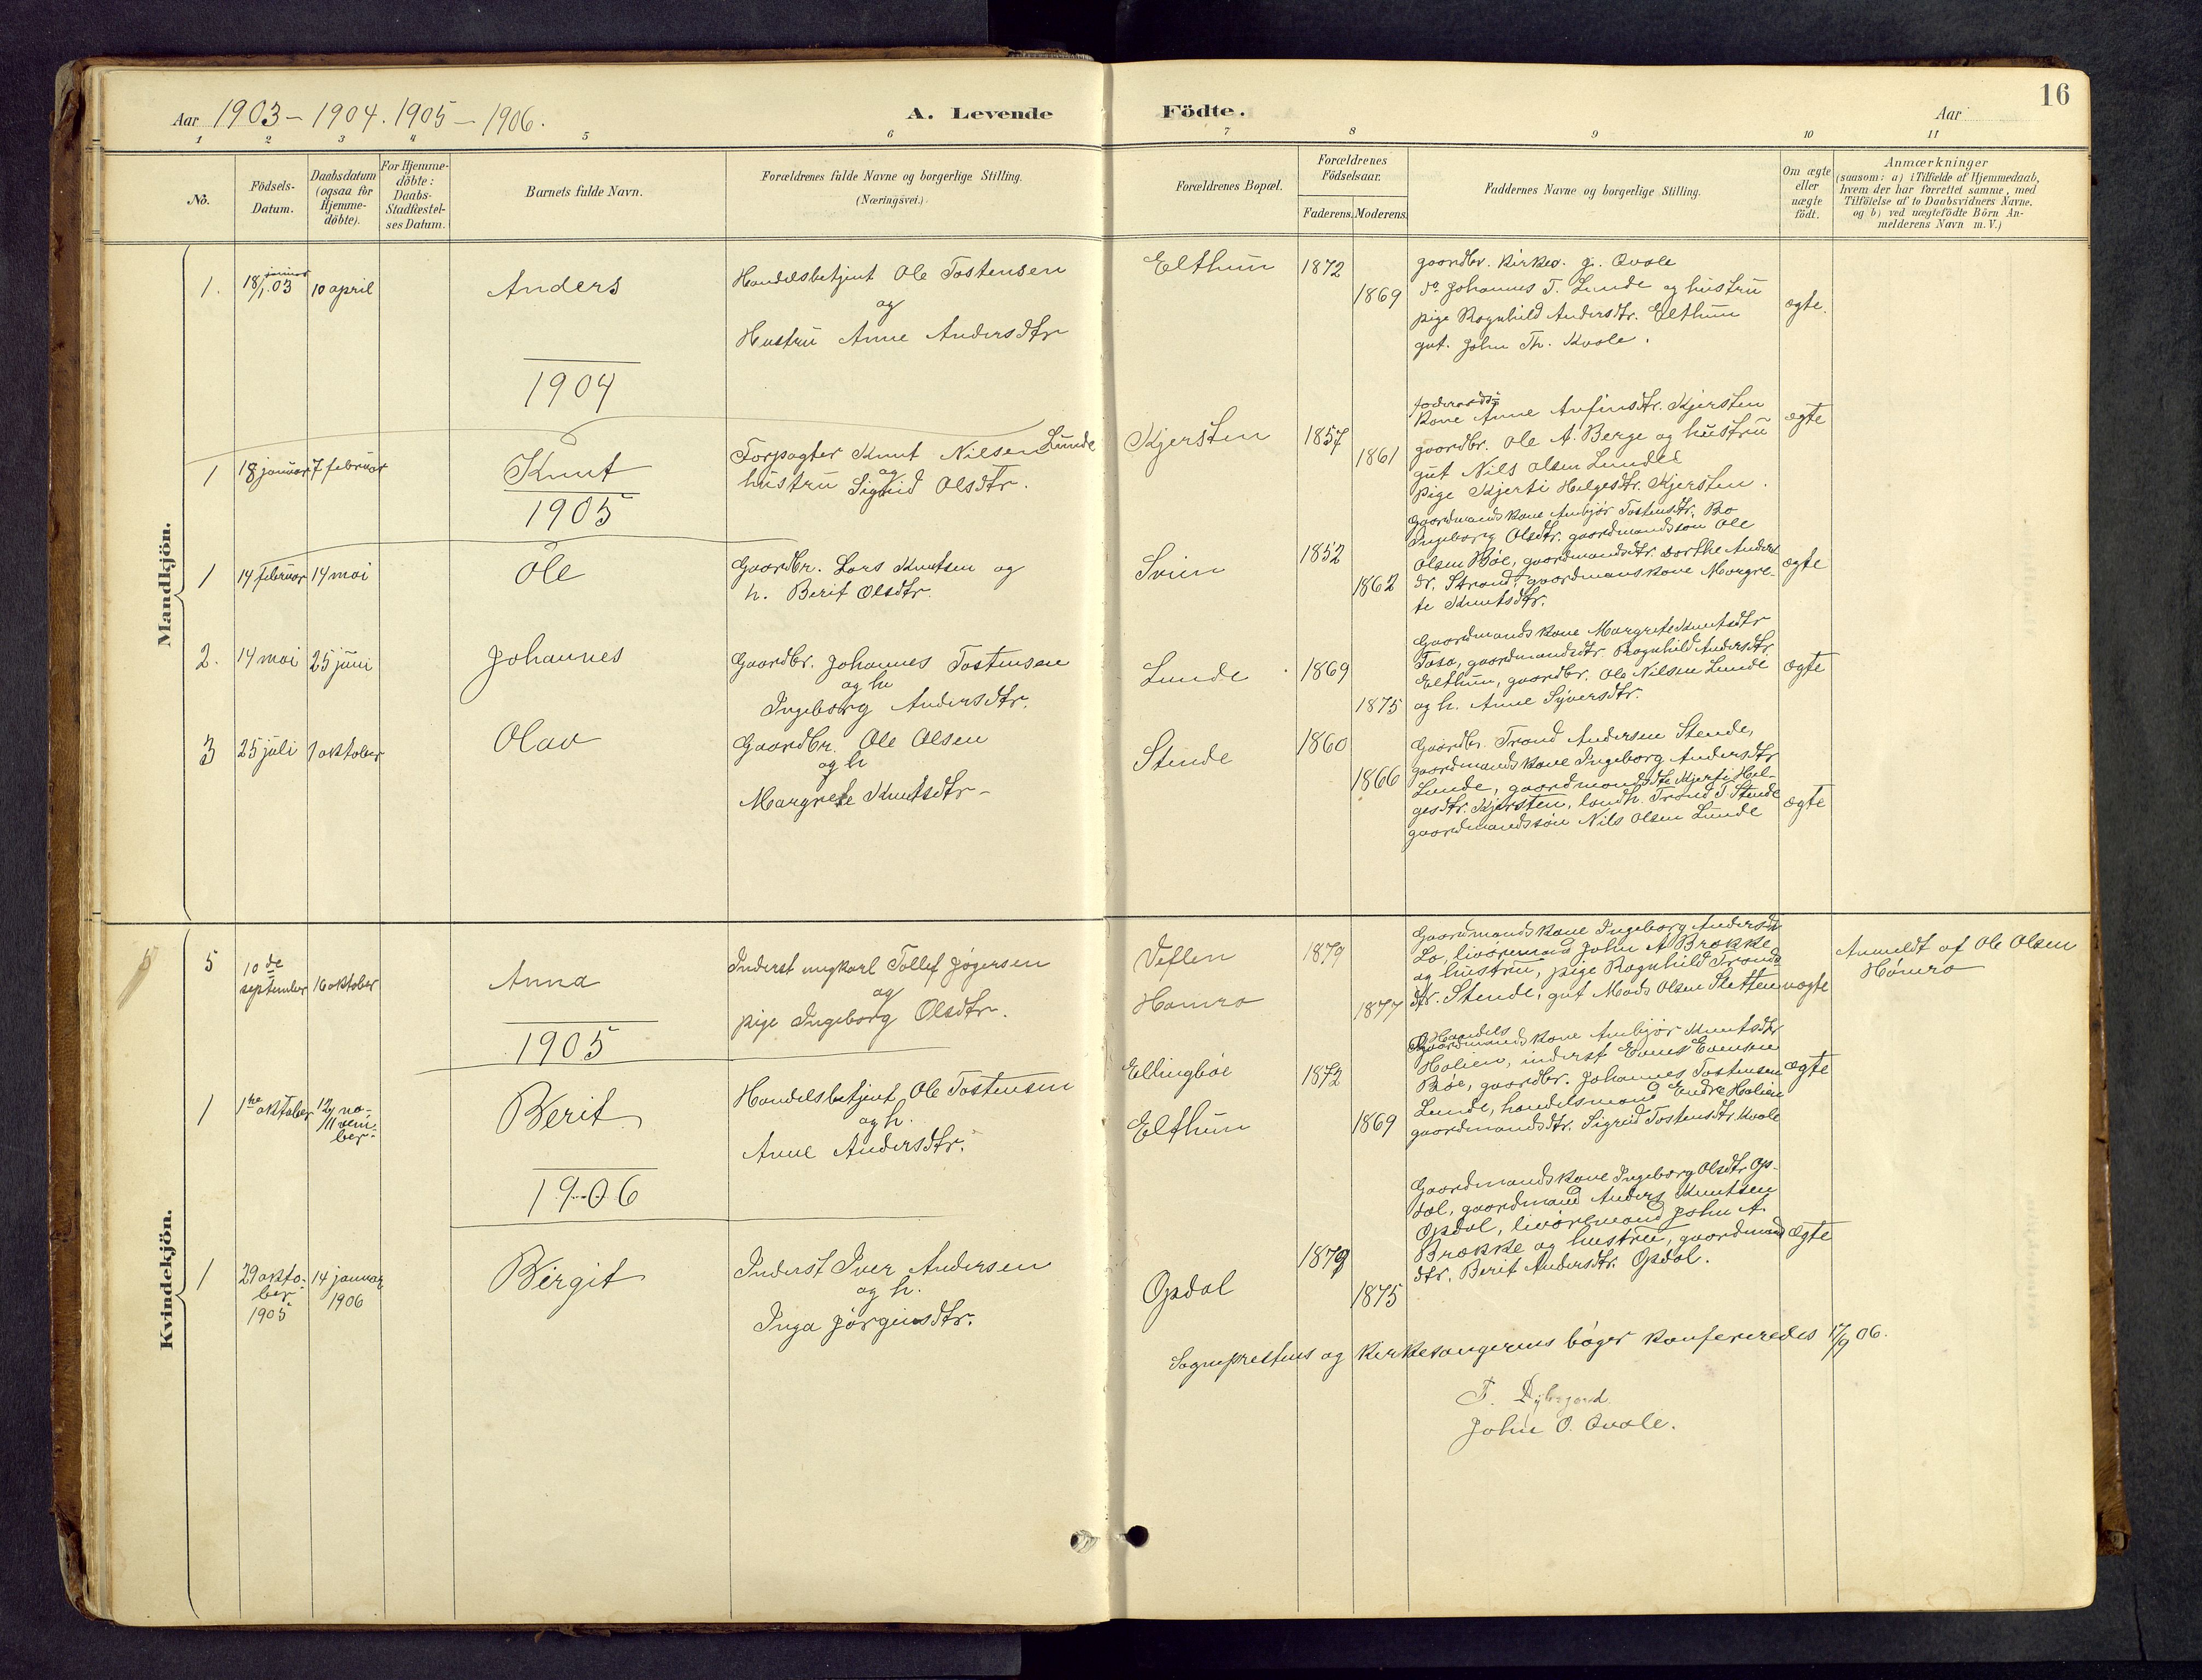 Aar 1903 – 1904. 1905 – 1906.
A. Levende
Födte.
Aar
16
1 2 3 4 5 6 7 8 9 10 11
No.
Födsels-
Datum.
Daabsdatum
(ogsaa for
Hjemme-
döbte).
For Hjemme-
döbte:
Daabs-
Stadfæstel-
ses Datum.
Barnets fulde Navn.
Forældrenes fulde Navne og borgerlige Stilling.
(Næringsvei.)
Forældrenes Bopæl.
Forældrenes
Födselsaar.
Faderens. Moderens.
Faddernes Navne og borgerlige Stilling.
Om ægte
eller
uægte
födt.
Anmærkninger
(saasom: a) i Tilfælde af Hjemmedaab,
hvem der har forrettet samme, med
Tilföielse af to Daabsvidners Navne.
og b) ved uægtefödte Börn An-
melderens Navn m.V.)
Mandkjön.
1. 18/1. 03 januar
10 april
Anders
Handelsbetjent Ole Tostensen
og
Hustru Anne Andersdtr
Elthun
1872
1869
gaardbr. kirkes. gj. Qvale
do Johannes T. Lunde og hustru
pige Ragnhild Andersdtr. Elthun
gut. John Th. Kvale.
ægte.
1904
1 18 januar 7 februar
Knut
Forpagter Knut Nilsen Lunde
og
hustru Sigrid Olsdtr.
Kjersten
1857
1861
Kone Anne Anfinsdtr. Kjersten
gaardbr. Ole A. Berge og hustru
gut Nils Olsen Lunde
pige Kjerti Helgesdtr. Kjersten.
ægte
1905
1 14 februar 14 mai
Ole
Gaardbr. Lars Knutsen og
h. Berit Olsdtr.
Svien
1852
1862
Gaardmandskone Ambjør Tostensdtr. Bø
Ingeborg Olsdtr. gaardmandssøn Ole
Olsen Bøe, gaardmandsdtr. Dorthe Anders
dr. Strand, gaardmanskone Margre-
te Knutsdtr.
ægte
2. 14 mai 25 juni
Johannes
Gaardbr. Johannes Tostensen
og h
Ingeborg Andersdtr.
Lunde
1869
1875
Gaardmandskone Margrete Knutsdtr
Fosa, gaardmandsdtr. Ragnhild Andersdtr.
Elthun, gaardbr. Ole Nilsen Lunde
og h. Anne Syversdtr.
ægte
3 25 juli 1 oktober
Olav
Gaardbr. Ole Olsen
og h
Margrete Knutsdtr –
Stende
1860
1866
Gaardbr. Trond Andersen Stende,
gaardmandskone Ingeborg Andersdtr
Lunde, gaardmandsdtr Kjerti Hel-
gesdtr. Kjersten, landh. Trond T. Stende
gaardmandssøn Nils Olsen Lunde
ægte
Kvindekjön.
5 10de
september 16 oktober
Anna
Inderst ungkarl Tollef Jøgersen
og
pige Ingeborg Olsdtr.
Veflen
Hamro
1879
1877
Gaardmandskone Ingeborg Andersdtr
Lo, livøremand John A Brække
og hustru, pige Ragnhild Tronds
dtr. Stende, gut Mads Olsen Sletten
uægte
Anmeldt af Ole Olsen
Hømro
1905
1 1ste oktober 12/11 no-
vem-
ber
Berit
Handelsbetjent Ole Tostensen
og h.
Anne Andersdtr.
Ellingbøe
Elthun
1872
1869
Handels
mandskone Ambjør Knutsdtr
Holien, inderst Evens Evensen
Bøe, gaardbr. Johannes Tostensen
Lunde, handelsmand Endre Holien
gaardmandsdtr. Sigrid Tostensdtr. Kvale
ægte
1906
1 29 okto-
ber
1905
14 januar
1906
Birgit
Inderst Iver Andersen
og h.
Inga Jørgensdtr.
Opdal
1879
1875
Gaardmandskone Ingeborg Olsdtr. Op-
dal, gaardmand Anders Knutsen
Opdal, livøremand John A.
Brække og hustru, gaardmand
dtr. Berit Andersdtr. Opdal.
ægte
Sogneprestens og kirkesangerens bøger konfereredes 17/9 06.
John O. Qvale.